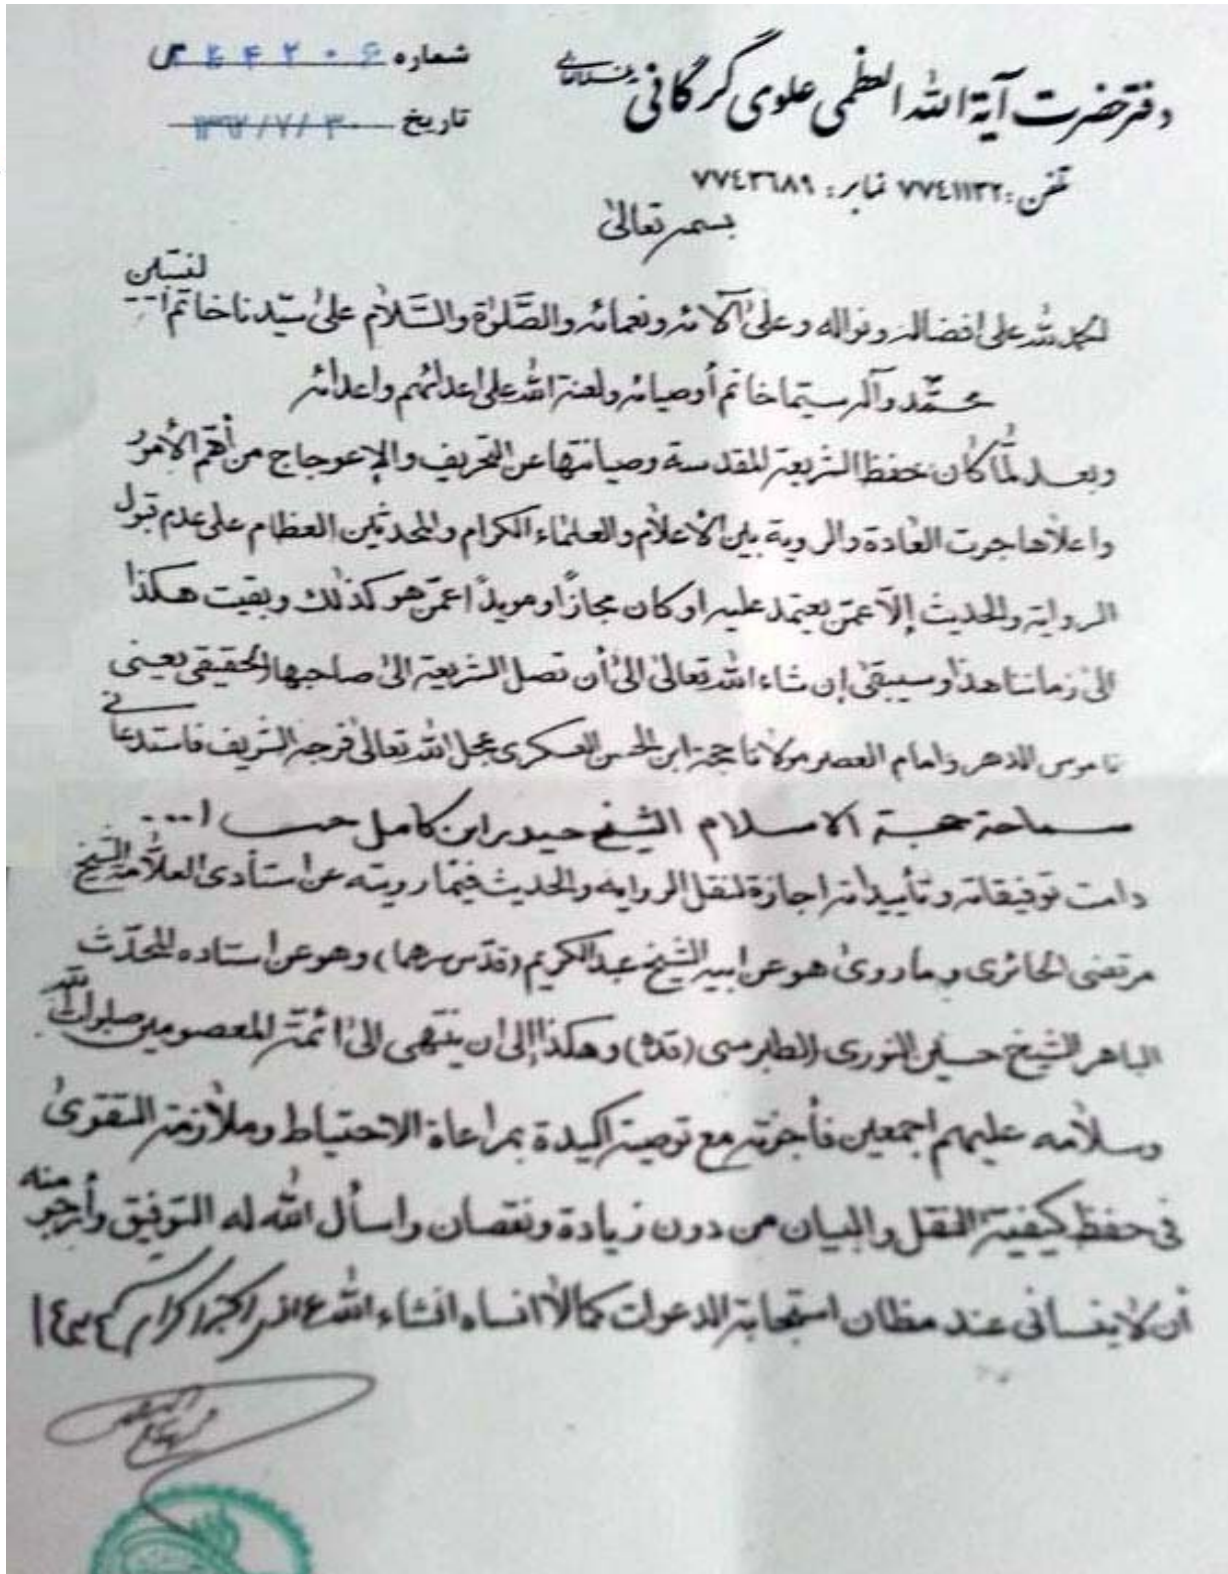 دفتر حضرت آیة الله العظمی علوی گرگانی
شماره
تاریخ ۱۳۹۲/۷/۳۰
تلفن: ۷۷٤۱۱۳۲ نمابر: ۷۷٤۳٦۸۹
بسمه تعالى
الحمد لله على افضاله ونواله وعلىٰ آلائه ونعمائه والصَّلوٰة والسَّلام علىٰ سيّدنا خاتم النبيين
محمّد وآله سيّما خاتم أوصيائه ولعنة الله على اعدائهم واعدائه
وبعد لمّا كان حفظ الشريعة المقدسة وصيانتها عن التحريف والإعوجاج من أهمّ الأمور
واعلاها جرت العادة والروية بين الأعلام والعلماء الكرام والمحدثين العظام على عدم قبول
الرواية والحديث إلّا عمّن يعتمد عليه او كان مجازاً ومويداً عمّن هو كذلك وبقيت هكذا
الىٰ زماننا هذا وسيبقىٰ إن شاء الله تعالىٰ الىٰ أن تصل الشريعة الىٰ صاحبها الحقيقى يعنى
ناموس الدهر وامام العصر مولانا حجة ابن الحسن العسكرى عجل الله تعالىٰ فرجه الشريف فاستدعانى
سماحة حجة الاسلام الشيخ حيدر ابن كامل حب ا...
دامت توفيقاته وتأييداته اجازة لنقل الرواية والحديث فيما رويته عن استادى العلّامة الشيخ
مرتضى الحائرى وماروىٰ هو عن ابيه الشيخ عبدالكريم (قدّس سرهما) وهو عن استاده المحدّث
الباهر الشيخ حسين النورى الطبرسى (قده) وهكذا إلى ان ينتهى الىٰ ائمّة المعصومين صلوات الله
وسلامه عليهم اجمعين فأجزته مع توصية اكيدة بمراعاة الاحتياط وملازمة التقوىٰ
فى حفظ كيفية النقل والبيان من دون زيادة ونقصان واسأل الله له التوفيق وأرجو منه
أن لاينسانى عند مظان استجابة الدعوات كما لا انساه انشاء الله